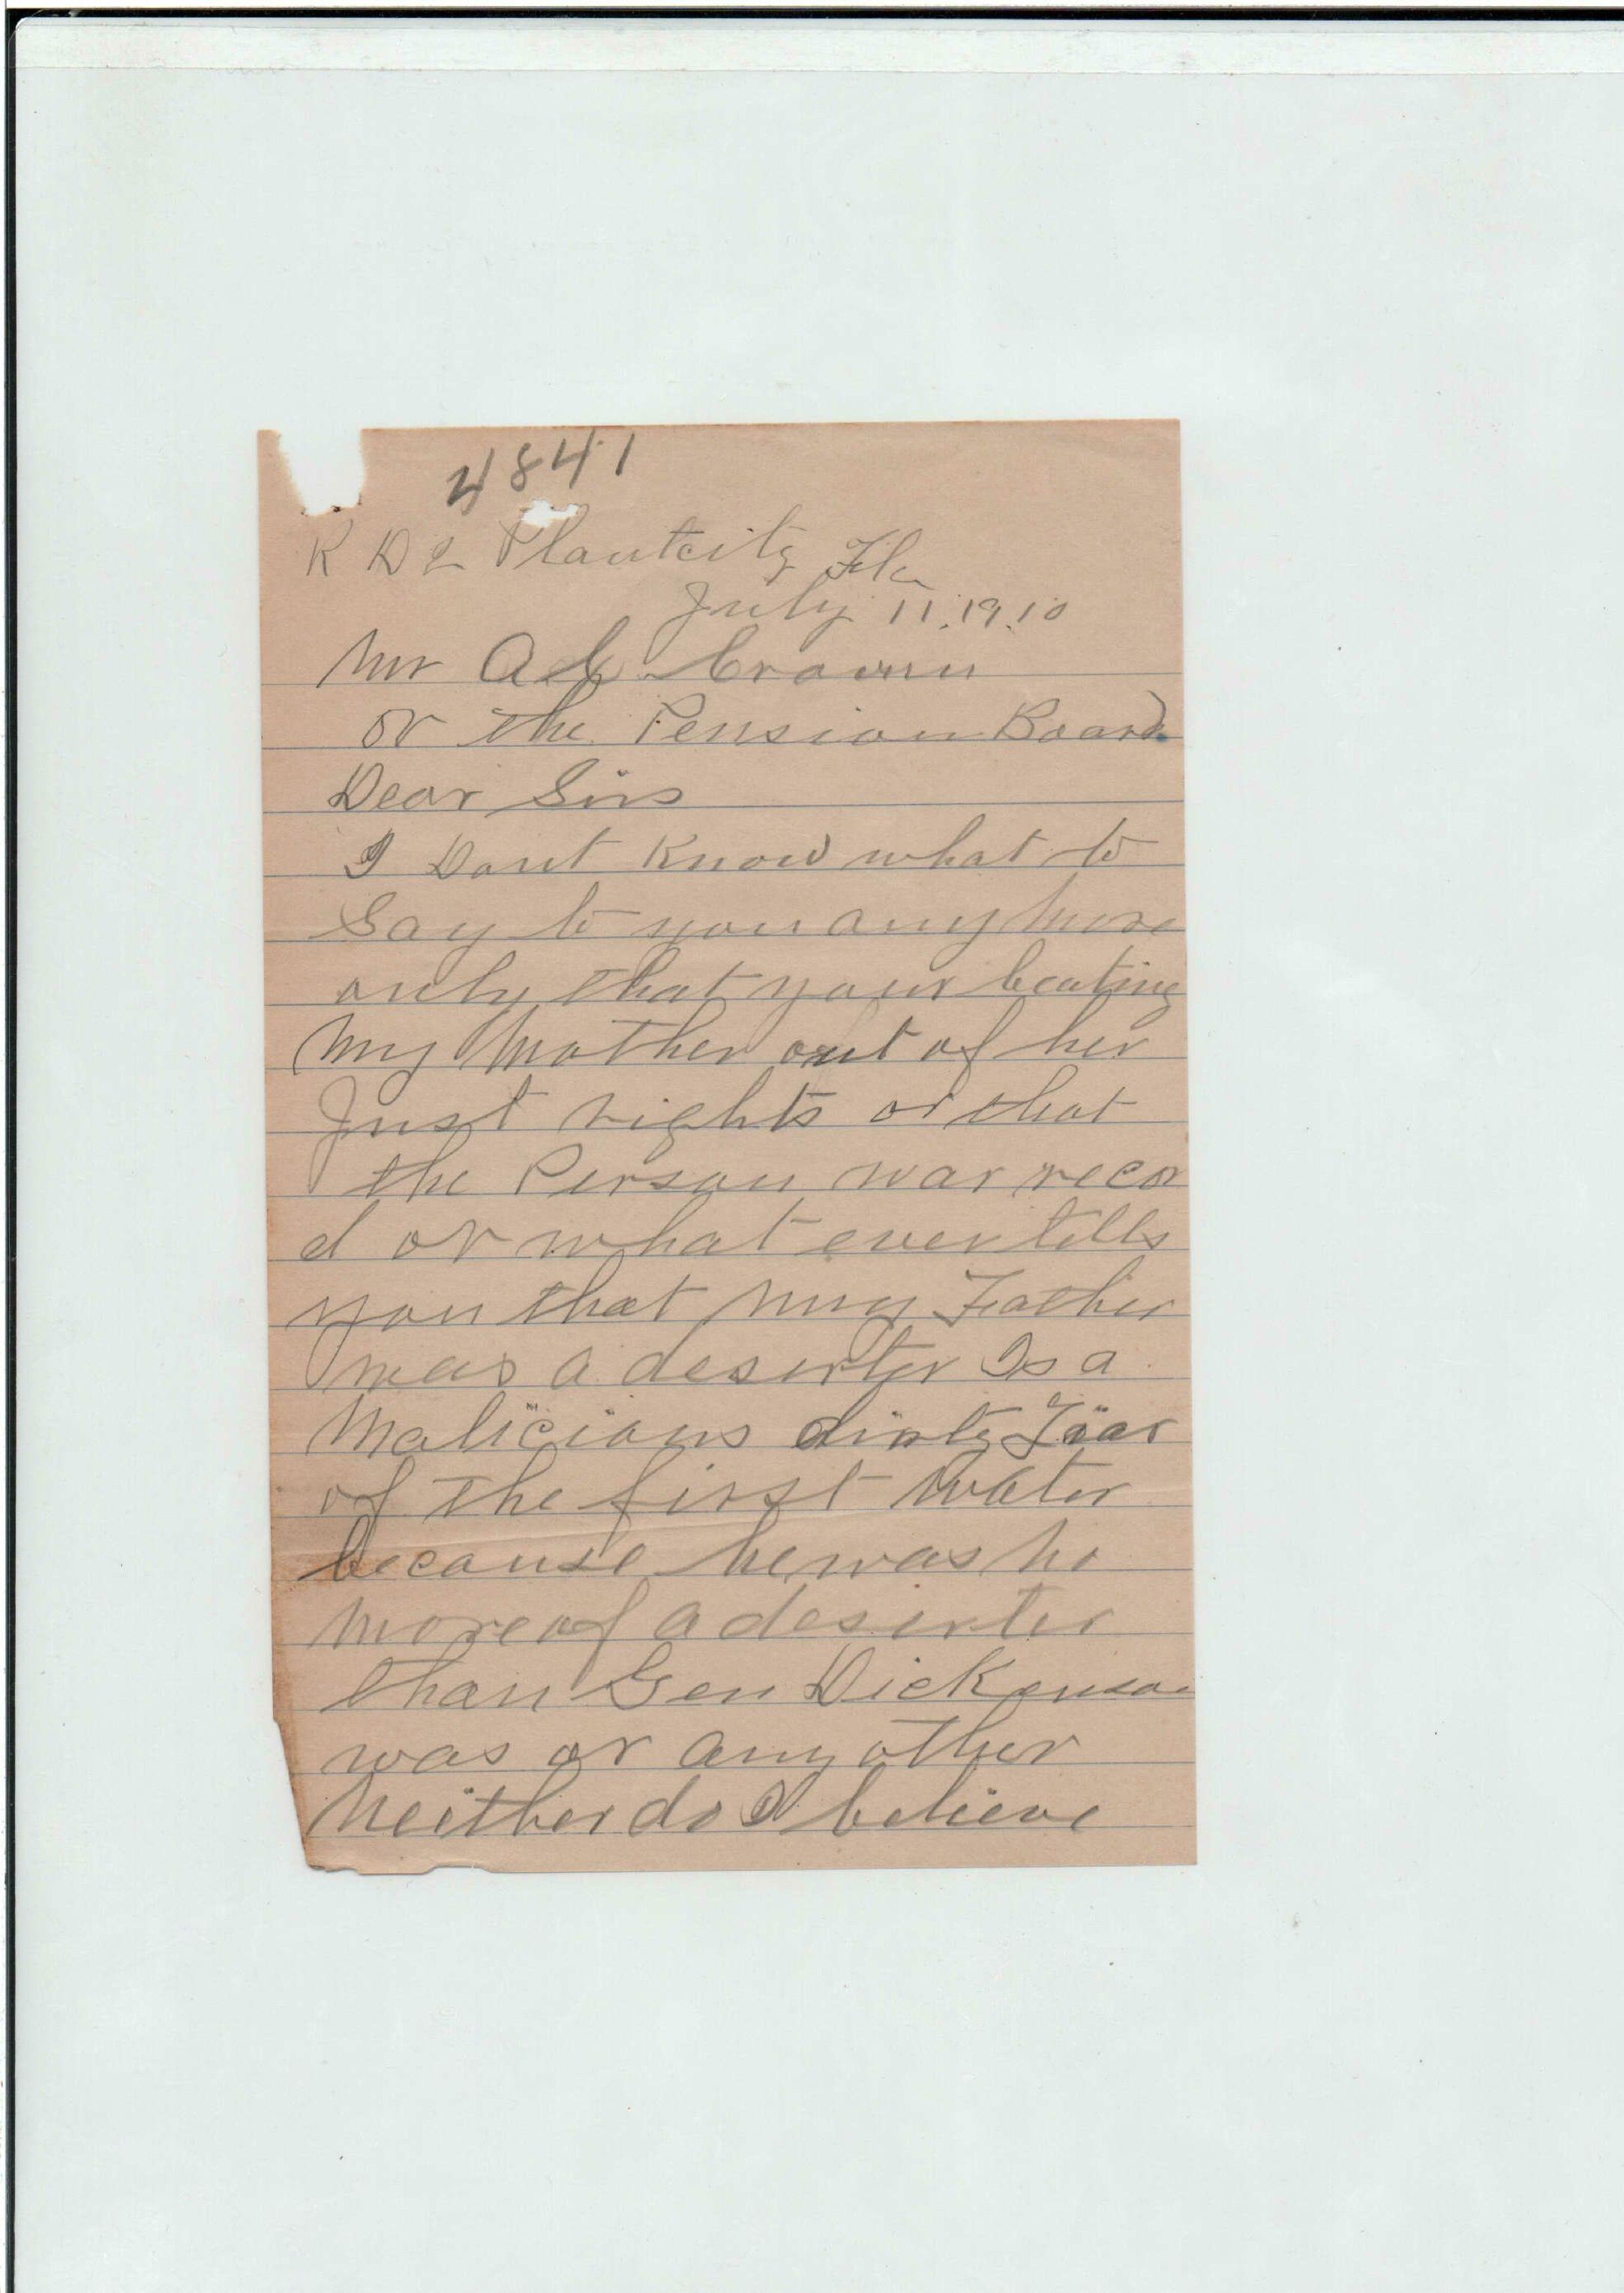 4841
R D 2 Plantcity Fla
July 11.19.10
Mr A C Croom
or the Pension Board
Dear Sirs
I Dont Know what to
Say to you any more
only that your beating
My Mother out of her
Just rights or that
the Person war recor
d or what ever tells
you that my Father
was a deserter Is a
Malicious dirty Liar
of the first Water
because he was no
more of a deserter
than Gen Dickenson
was or any other
Neither do I believe